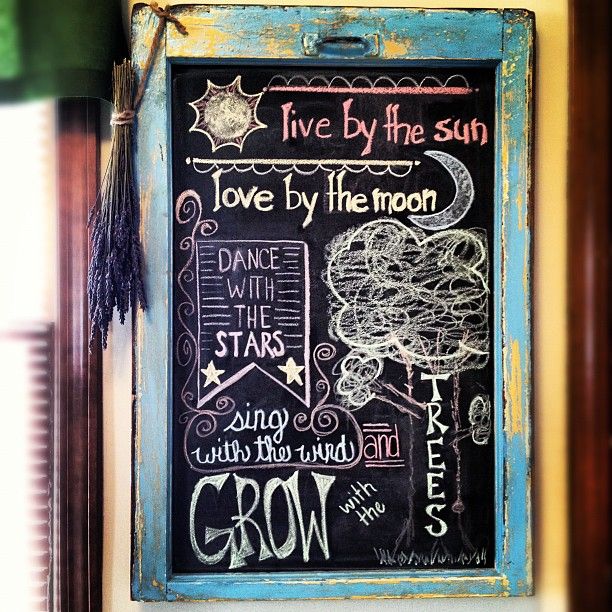 live by the sun
love by the moon
DANCE
WITH
THE
STARS
sing
with the wind
and
GROW
with
the
TREES